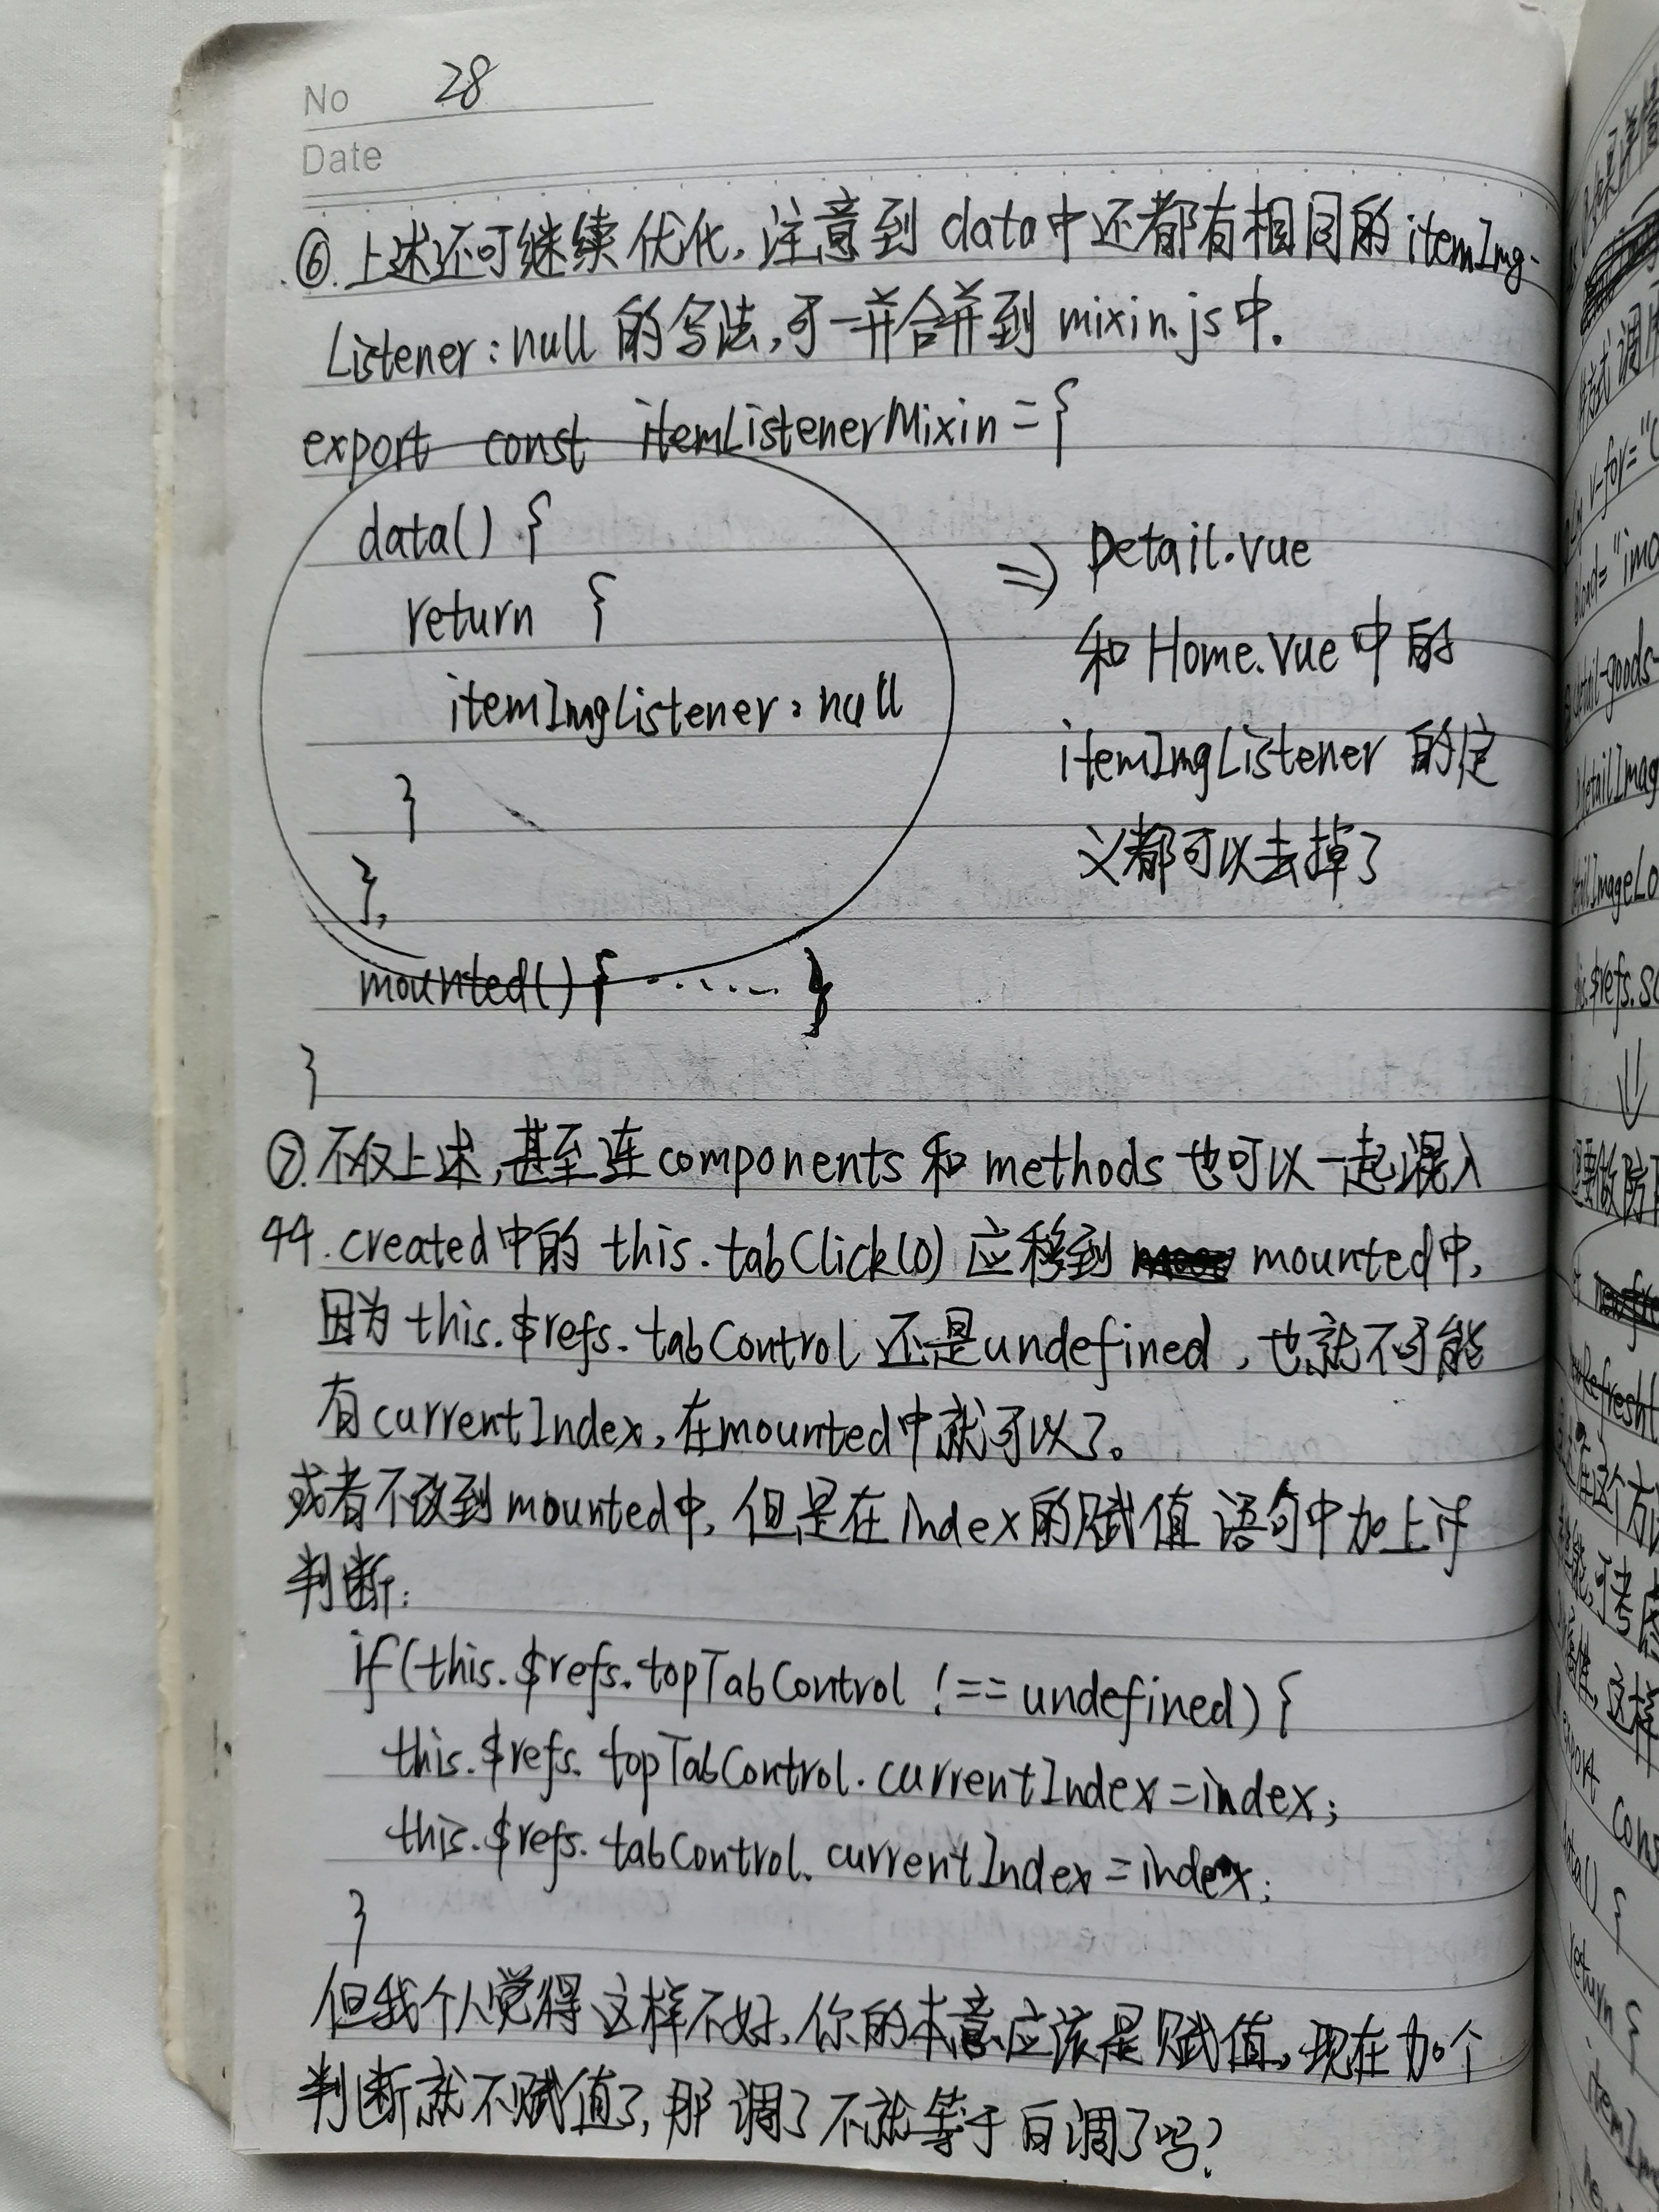 No 28
Date
⑥.上述还可继续优化,注意到data中还都有相同的itemImg-
Listener:null的写法,可一并合并到mixin.js中.
export const itemListenerMixin={
data() {
return {
itemImgListener:null
}
},
mounted() { ...... }
}
⇒ Detail.vue
和Home.vue中的
itemImgListener的定
义都可以去掉了
⑦.不仅上述,甚至连components和methods也可以一起混入
44.created中的this.tabClick(0)应移到 mounted中,
因为this.$refs.tabControl还是undefined,也就不可能
有currentIndex,在mounted中就可以了。
或者不改到mounted中,但是在index的赋值语句中加上if
判断:
if(this.$refs.topTabControl !== undefined) {
this.$refs.topTabControl.currentIndex=index;
this.$refs.tabControl.currentIndex=index;
}
但我个人觉得这样不好,你的本意应该是赋值,现在加个
判断就不赋值了,那调了不就等于白调了吗?
v-for="
load="imo
detail-goods-
detailImag
ImageLo
$refs.sc
export cons
data() {
return {
itemIm